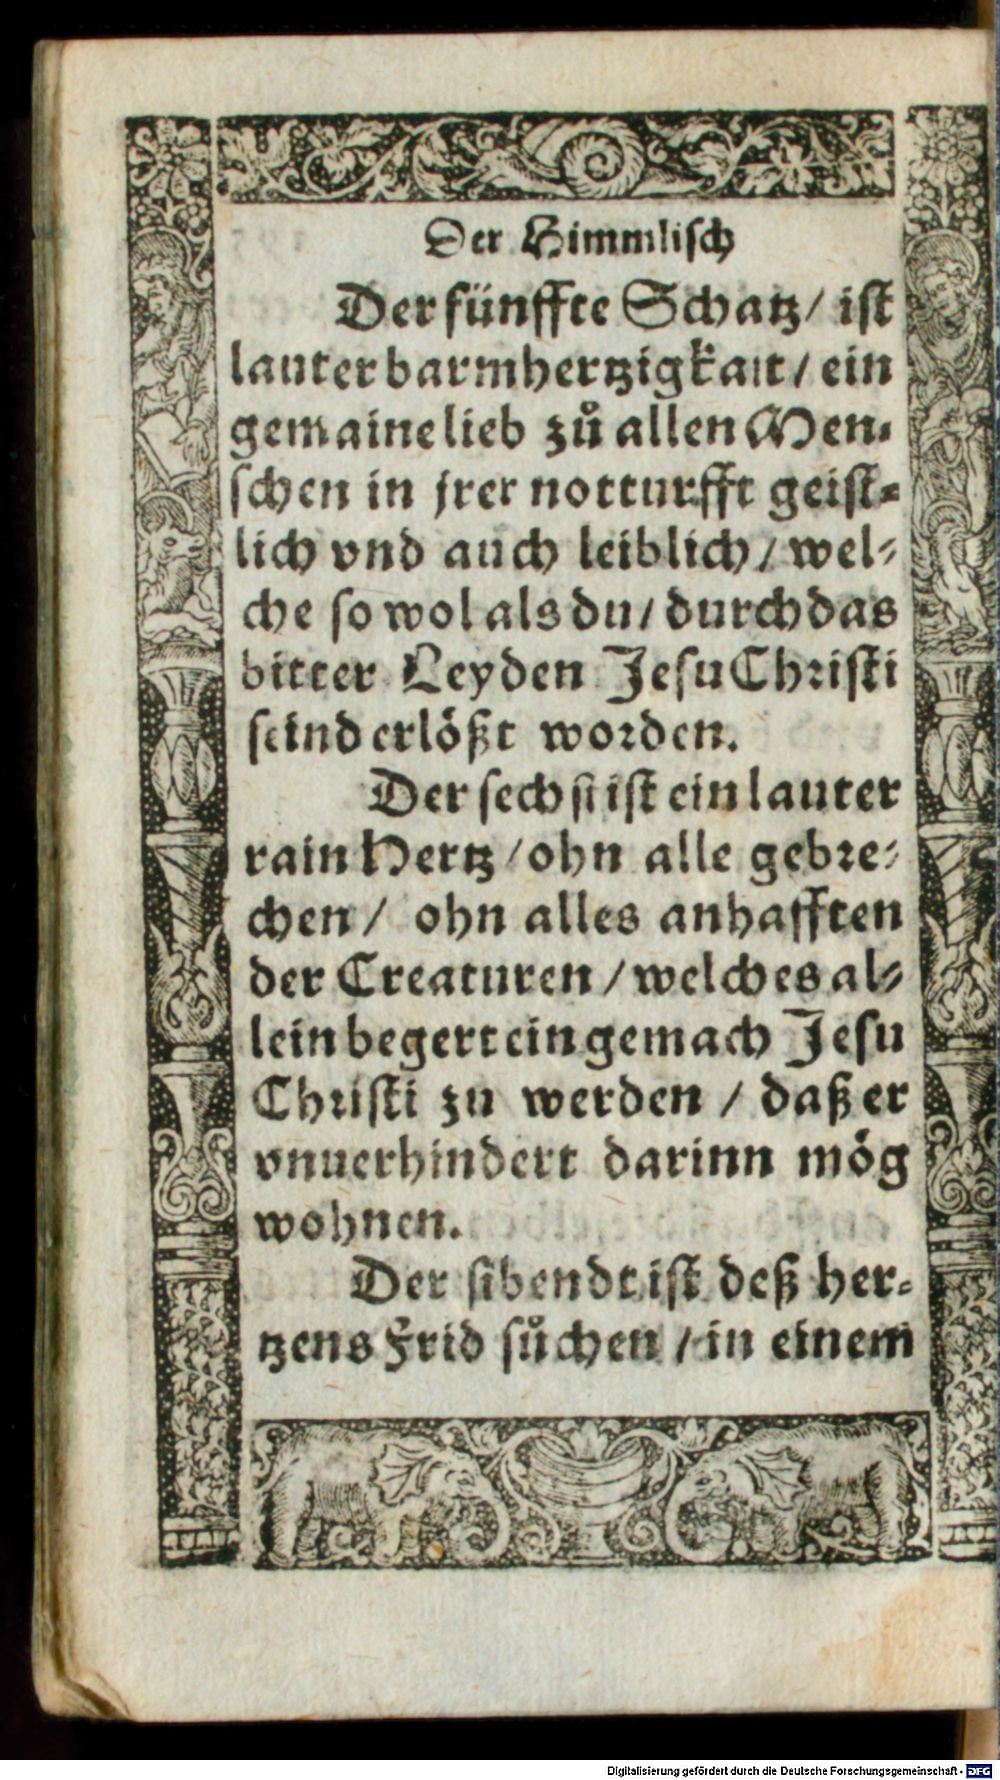 Der Himmlisch
Der fünffte Schatz / ist
lauter barmhertzigkait / ein
gemaine lieb zů allen Men-
schen in jrer notturfft geist-
lich vnd auch leiblich / wel-
che so wol als du / durch das
bitter Leyden Jesu Christi
seind erlößt worden.
Der sechst ist ein lauter
rain Hertz / ohn alle gebre-
chen / ohn alles anhafften
der Creaturen / welches al-
lein begert ein gemach Jesu
Christi zu werden / daß er
vnuerhindert darinn mög
wohnen.
Der sibendt ist deß her-
tzens Frid sůchen / in einem
Digitalisierung gefördert durch die Deutsche Forschungsgemeinschaft - DFG